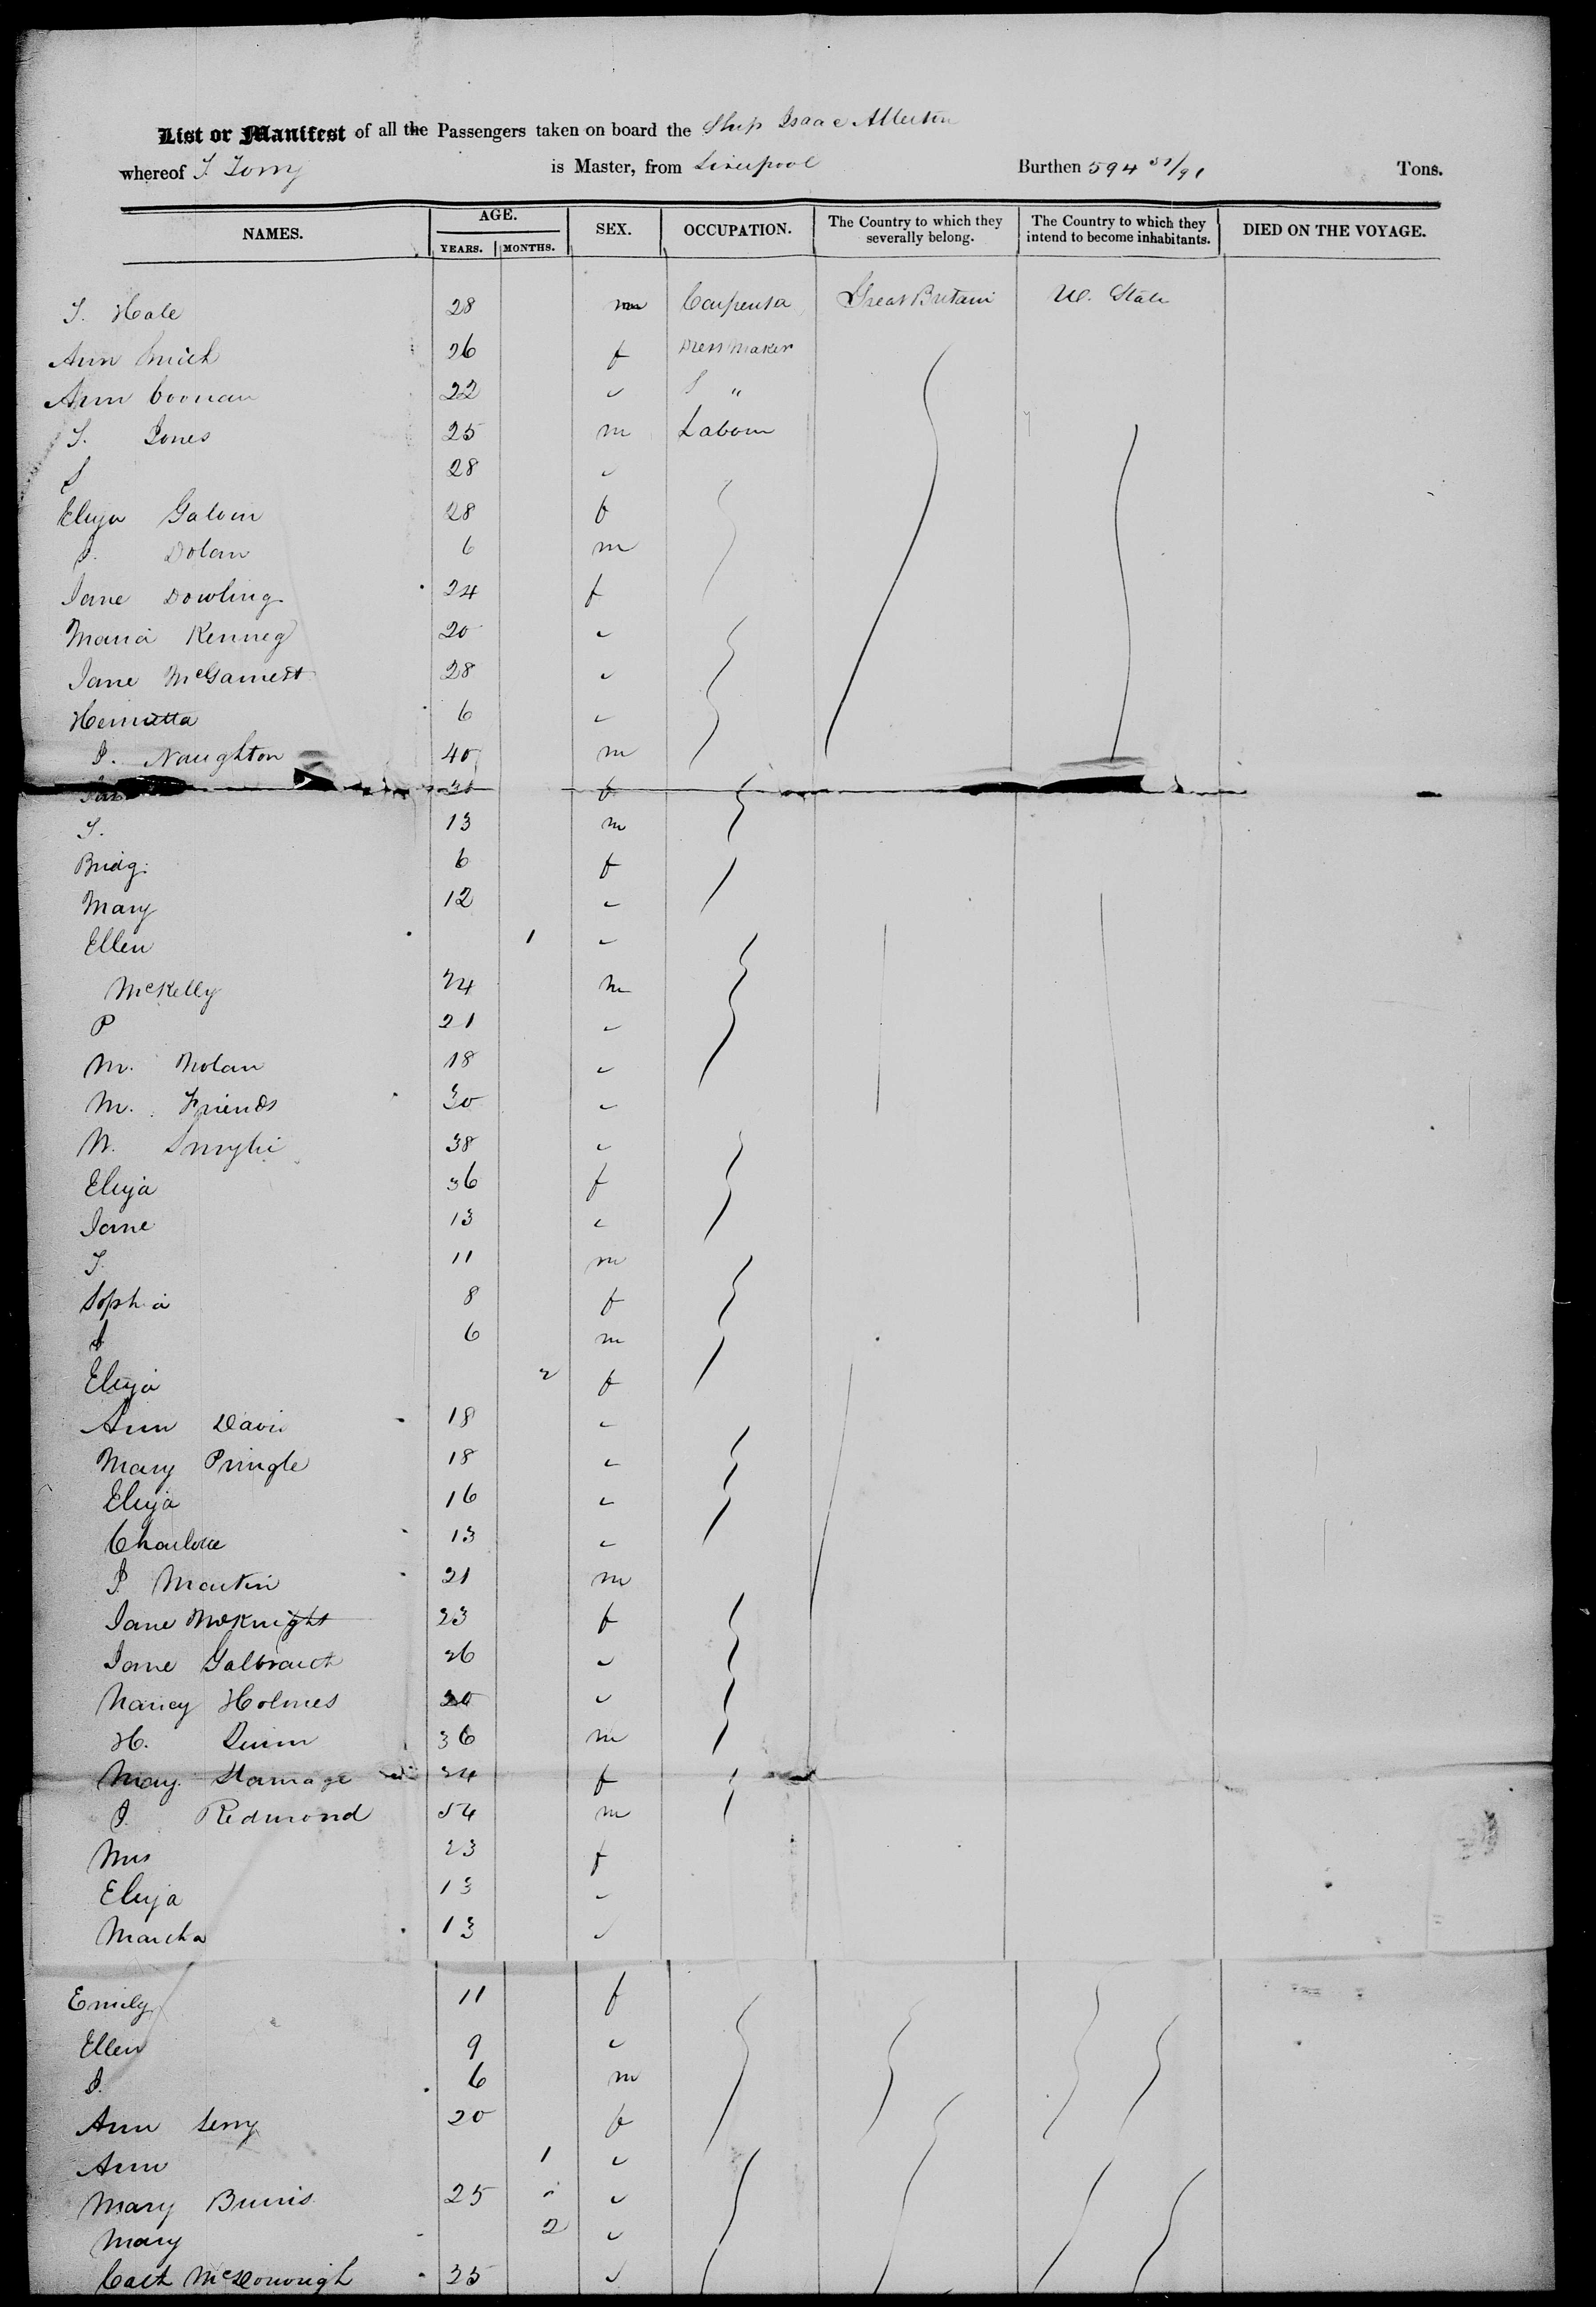 List or Manifest of all the Passengers taken on board the Ship Isaac Allerton
whereof J. Torry is Master, from Liverpool Burthen 594 51/91 Tons.
NAMES. AGE. YEARS. MONTHS. SEX. OCCUPATION. The Country to which they severally belong. The Country to which they intend to become inhabitants. DIED ON THE VOYAGE.
Hale 28 m Carpenter Great Britain U. State
Ann 26 f Dress Maker
Ann Coonan 22 " "
Jones 25 m Labour
28 "
Eliza Galvin 28 f
Dolan 6 m
Jane Dowling 24 f
Maria 20 "
Jane 28 "
Henrietta 6 "
P. Naughton 40 m
f
13 m
Bridg: 6 f
Mary 12 "
Ellen 1 "
McKelly 24 m
P 21 "
M. Nolan 18 "
M. Friends 30 "
38 "
Eliza 36 f
Jane 13 "
11 m
Sophia 8 f
6 m
Eliza 2 f
Ann Davis 18 "
Mary Pringle 18 "
Eliza 16 "
Charlotte 13 "
P. Martin 21 m
Jane McKnight 23 f
Jane Galbraith 26 "
Nancy Holmes "
H. Quinn 36 m
Mary 24 f
Redmond 54 m
Mrs 23 f
Eliza 13 "
Martha 13 "
Emily 11 f
Ellen 9 "
6 m
Ann 20 f
Ann 1 "
Mary Burris 25 "
Mary 2 "
Cath McDonough 25 "